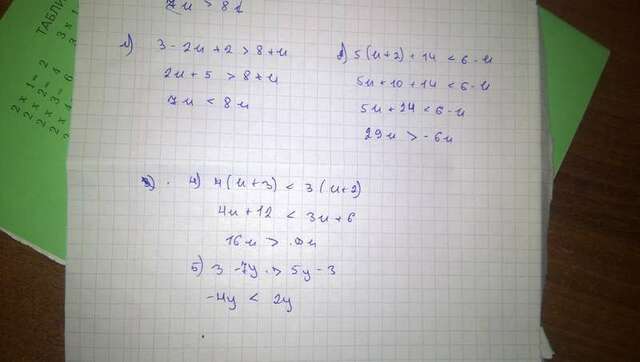 7u > 8
1) 3 - 2u + 2 > 8 + u
2u + 5 > 8 + u
7u < 8u
2) 5(u+2) + 14 < 6 - u
5u + 10 + 14 < 6 - u
5u + 24 < 6 - u
29u > -6u
4) 4(u+3) < 3(u+2)
4u + 12 < 3u + 6
16u >
5) 3 - 7y > 5y - 3
-4y < 2y
ТАБЛИ
2 x 1 = 2
2 x 2 = 4
2 x 3 = 6
2 x 4
3 x 1
3 x